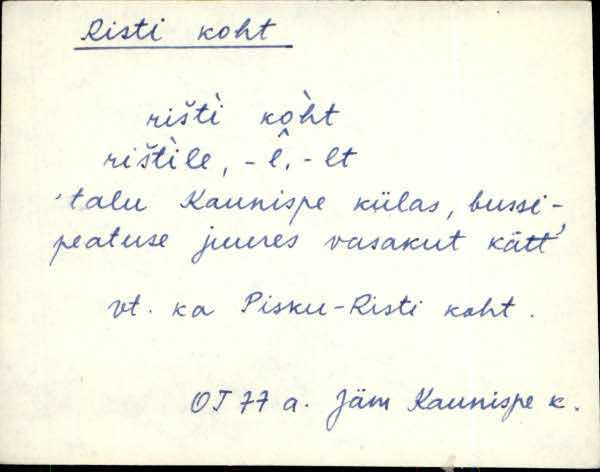 Risti koht
rišti̇̀ kȯ̀ht
rištìle, -l̂, -lt
talu Kaunispe külas, bussi-
peatuse juures vasakut kätt
vt. ka Pisku-Risti koht.
OT 77 a. Jäm Kaunispe k.